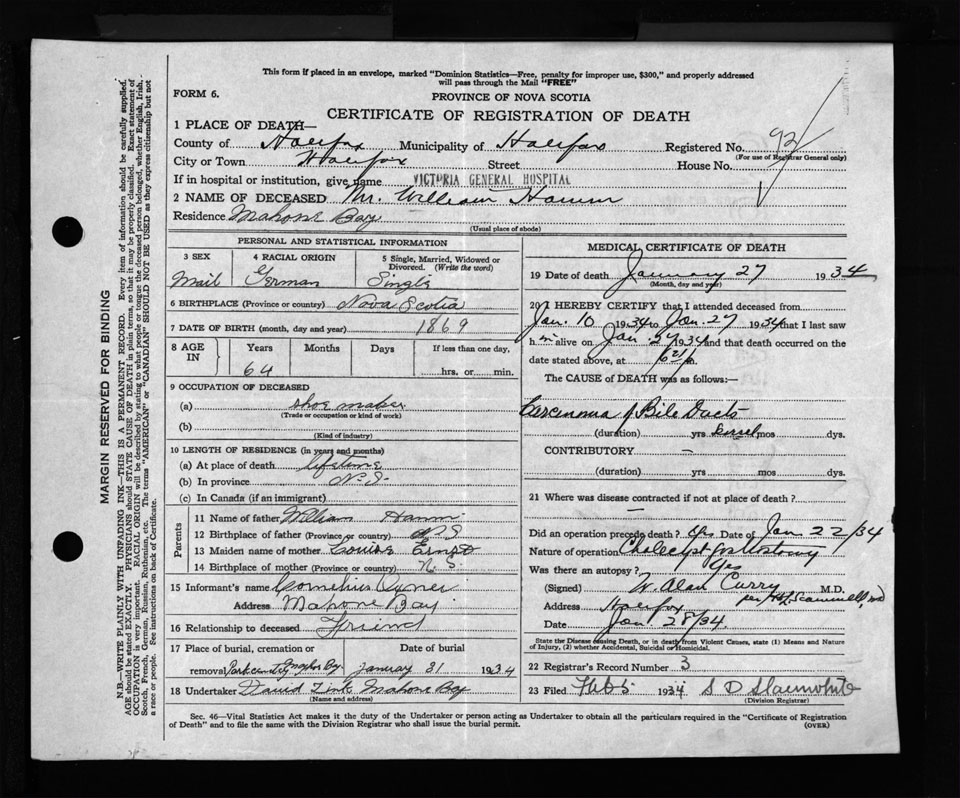 This form if placed in an envelope, marked "Dominion Statistics—Free, penalty for improper use, $300," and properly addressed
will pass through the Mail "FREE"
FORM 6.
PROVINCE OF NOVA SCOTIA
CERTIFICATE OF REGISTRATION OF DEATH
1 PLACE OF DEATH—
County of Halifax Municipality of Halifax Registered No. 92
(For use of Registrar General only)
City or Town Halifax Street House No.
If in hospital or institution, give name VICTORIA GENERAL HOSPITAL
2 NAME OF DECEASED Mr. William Hamm
Residence Mahone Bay
(Usual place of abode)
PERSONAL AND STATISTICAL INFORMATION
3 SEX
Mail
4 RACIAL ORIGIN
German
5 Single, Married, Widowed or
Divorced. (Write the word)
Single
6 BIRTHPLACE (Province or country) Nova Scotia
7 DATE OF BIRTH (month, day and year) 1869
8 AGE IN Years Months Days If less than one day,
64 hrs. or min.
9 OCCUPATION OF DECEASED
(a) shoe maker
(Trade or occupation or kind of work)
(b)
(Kind of industry)
10 LENGTH OF RESIDENCE (in years and months)
(a) At place of death lifetime
(b) In province N.S.
(c) In Canada (if an immigrant)
Parents
11 Name of father William Hamm
12 Birthplace of father (Province or country) N S
13 Maiden name of mother Louise Ernst
14 Birthplace of mother (Province or country) N. S.
15 Informant's name Cornelius
Address Mahone Bay
16 Relationship to deceased Friend
17 Place of burial, cremation or Date of burial
removal Park January 31 1934
18 Undertaker David Zink Mahone Bay
(Name and address)
MEDICAL CERTIFICATE OF DEATH
19 Date of death January 27 1934
(Month, day and year)
20 I HEREBY CERTIFY that I attended deceased from
Jan. 10 1934 to Jan. 27 1934 that I last saw
h m alive on Jan. 27 1934 and that death occurred on
date stated above, at
The CAUSE of DEATH was as follows:—
Carcinoma of Bile Ducts
(duration) yrs mos dys.
CONTRIBUTORY —
(duration) yrs mos dys.
21 Where was disease contracted if not at place of death?
—
Did an operation precede death? Yes Date of Jan 22/34
Nature of operation
Was there an autopsy? Yes
(Signed) W. Alan Curry M.D.
Address Halifax per
Date Jan 28/34.
State the Disease causing Death, or in death from Violent Causes, state (1) Means and Nature
of Injury, (2) whether Accidental, Suicidal or Homicidal.
22 Registrar's Record Number 3
23 Filed Feb 5 1934 S D
(Division Registrar)
Sec. 46—Vital Statistics Act makes it the duty of the Undertaker or person acting as Undertaker to obtain all the particulars required in the "Certificate of Registration
of Death" and to file the same with the Division Registrar who shall issue the burial permit. (OVER)
MARGIN RESERVED FOR BINDING
N.B.—WRITE PLAINLY WITH UNFADING INK—THIS IS A PERMANENT RECORD. Every item of information should be carefully supplied.
AGE should be stated EXACTLY. PHYSICIANS should STATE CAUSE OF DEATH in plain terms, so that it may be properly classified. Exact statement of
OCCUPATION is very important. RACIAL ORIGIN will be described by stating to what people or tongue the deceased person belonged, whether English, Irish,
Scotch, French, German, Russian, Ruthenian, etc. The terms "AMERICAN" or "CANADIAN" SHOULD NOT BE USED as they express citizenship but not
a race or people. See instructions on back of Certificate.